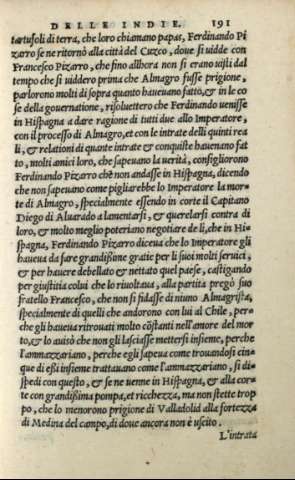 DELLE INDIE. 191
tartufoli di terra, che loro chiamano papas, Ferdinando Pi
zarro se ne ritornò alla città del Cuzco, doue si uidde con
Francesco Pizarro, che fino allhora non si erano uisti dal
tempo che si uiddero prima che Almagro fusse prigione,
parlorono molti dì sopra quanto haueuano fatto, & in le co
se della gouernatione, risoluettero che Ferdinando uenisse
in Hispagna a dare ragione di tutti due allo Imperatore,
con il processo di Almagro, et con le intrate delli quinti rea
li, & relationi di quante intrate & conquiste haueuano fat
to, molti amici loro, che sapeuano la uerità, consigliorono
Ferdinando Pizarro chè non andasse in Hispagna, dicendo
che non sapeuano come pigliarebbe lo Imperatore la mor=
te di Almagro, specialmente essendo in corte il Capitano
Diego di Aluarado a lamentarsi, & querelarsi contra di
loro, & molto meglio poteriano negotiare de lì, che in Hi=
spagna, Ferdinando Pizarro diceua che lo Imperatore gli
haueua da fare grandissime gratie per li suoi molti seruici,
& per hauere debellato & nettato quel paese, castigando
per giustitia colui che lo riuoltaua, alla partita pregò suo
fratello Francesco, che non si fidasse di niuno Almagrista,
specialmente di quelli che andorono con lui al Chile, per=
che gli haueua ritrouati molto cõstanti nell'amore del mor
to, & lo auisò che non gli lasciasse mettersi insieme, perche
l'ammazzariano, perche egli sapeua come trouandosi cin=
que di essi insieme trattauano come l'ammazzariano, si di=
spedì con questo, & se ne uenne in Hispagna, & alla cor=
te con grandissima pompa, et ricchezza, ma non stette trop
po, che lo menorono prigione di Valladolid alla fortezza
di Medina del campo, di doue ancora non è uscito.
L'intrata